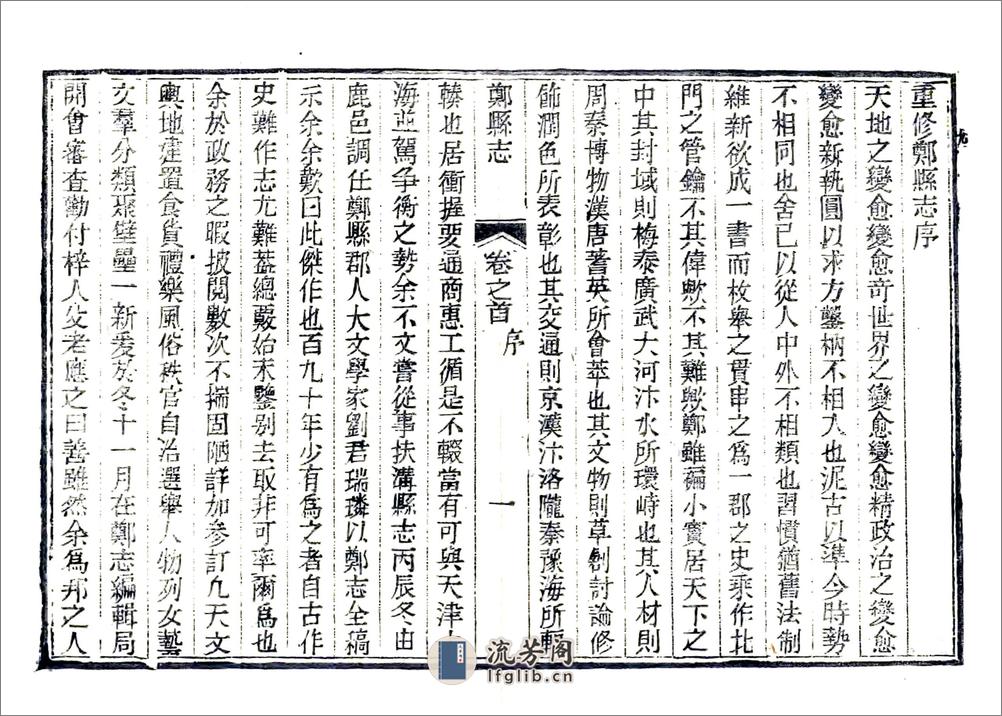 重修鄭縣志序
天地之變愈變愈奇世界之變愈變愈精政治之變愈
變愈新執圓以求方鑿枘不相入也泥古以準今時勢
不相同也舍己以從人中外不相類也習慣猶舊法制
維新欲成一書而枚舉之貫串之為一郡之史乘作北
門之管鑰不其偉歟不其難歟鄭雖褊小實居天下之
中其封域則梅泰廣武大河汴水所環峙也其人材則
周秦博物漢唐耆英所會萃也其文物則草創討論修
飾潤色所表彰也其交通則京漢汴洛隴秦豫海所輻
鄭縣志
卷之首
序
一
輳也居衝握要通商惠工循是不輟當有可與天津上
海並駕爭衡之勢余不文嘗從事扶溝縣志丙辰冬由
鹿邑調任鄭縣郡人大文學家劉君瑞璘以鄭志全稿
示余余歎曰此傑作也百九十年少有為之者自古作
史難作志尤難蓋總覈始末鑒别去取非可率爾為也
余於政務之暇披閱數次不揣固陋詳加參訂凡天文
輿地建置食貨禮樂風俗秩官自治選舉人物列女藝
文羣分類聚壁壘一新爰於冬十一月在鄭志編輯局
開會審查勸付梓人父老應之曰善雖然余為邦之人
流芳阁
lfglib.cn